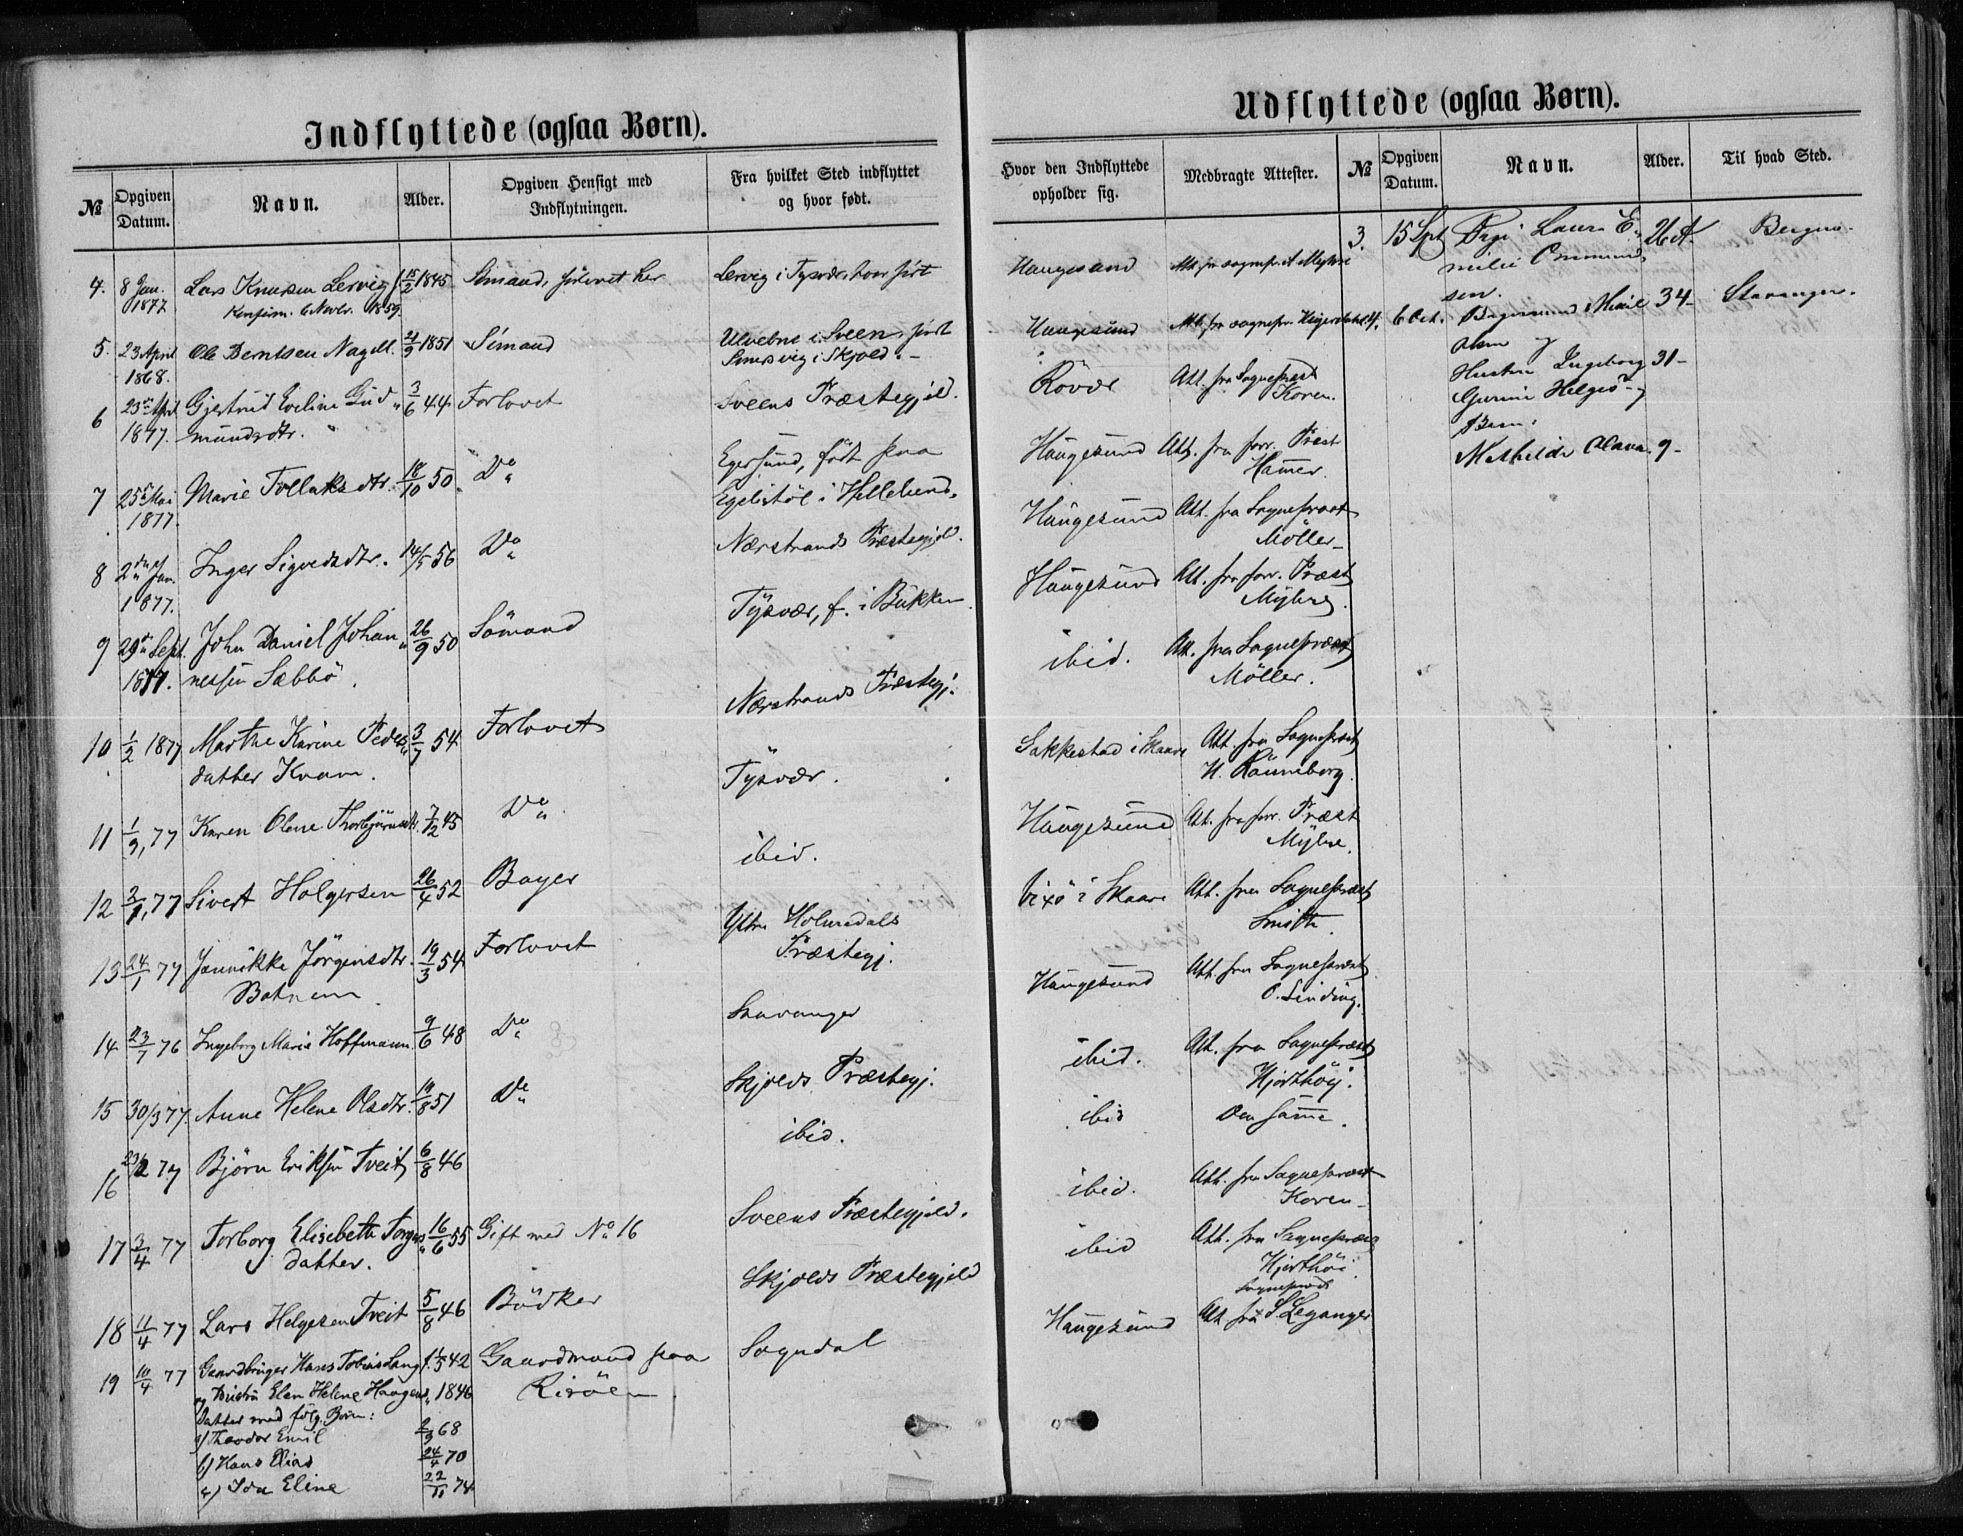 Indflyttede (ogsaa Børn).
№ Opgiven Datum. Navn. Alder. Opgiven Hensigt med Indflytningen. Fra hvilket Sted indflyttet og hvor født.
4. 8 Jan. Lars Knutsen Lervig f. 15/2 1845 Sömand, forlovet her Lervig i Tysvær, hvor født
1877 Konfirm. 6 Novbr. 1859.
5. 23 April Ole Berntsen Nagell. 21/9 1851 Sömand i Sveen, født
1868. i Skjold.
6 23de April Gjertrud Eveline Gud- 3/6 44 Forlovet Sveens Præstegjeld.
1877. mundsdtr.
7 25de Mai Marie Tollaksdtr. 18/10 50 Do Egersund, født paa
1877. i Helleland.
8 2den Jan. Inger Sigvedsdtr. 14/5 56 Do Nærstrands Præstegjeld.
1877.
9 29de Sept. John Daniel Johan- 26/9 50 Sömand Tysvær, f. i Bukken
1877. nessen Sæbbö.
10 1/2 1877 Marthe Karine Peders- 3/7 54 Forlovet Nærstrands Præstegj.
datter Kvam.
11 1/9, 77 Karen Olene Thorbjörnsdtr. 7/12 45 Do Tysvær.
12 3/1, 77 Sivert Holgersen 26/4 52 Bager ibid.
13 24/1 77 Jannikke Jörgensdtr. 19/3 54 Forlovet Ytre Holmedals
Botnem Præstegj.
14 23/7 76 Ingeborg Marie Hoffmann. 9/6 48 Do Stavanger
15 30/3 77. Anne Helene Olsdtr. 19/8 51 Do Skjolds Præstegj.
16 77 Björn Eriksen Tveit 6/8 46 ibid.
17 3/4 77 Torborg Elisebeth Torgers- 16/6 55 Gift med No 16 Sveens Præstegjeld.
datter.
18 11/4 77 Lars Helgesen Tveit 5/8 46 Bödker Skjolds Præstegjeld
19 10/4 77 Gaardbruger Hans Tobias Lang f. 1/5 42 Gaardmand paa Sogndal
og Hustru Elen Helene Haagens- 1846 Risöen
Datter med fölg. Börn:
a) Theodor Emil 2/9 68
b) Hans Elias 24/4 70
c) Ida Eline 22/11 74
Udflyttede (ogsaa Børn).
Hvor den Indflyttede opholder sig. Medbragte Attester. № Opgiven Datum. Navn. Alder. Til hvad Sted.
3. 15 Spt Laura E- 26 A. Bergen.
Haugesund Att. fra sognepr. A Myhre milie Ommund-
sen.
Haugesund Att. fra sognepr. 4. 6 Oct. Mikal 34- Stavanger.
Olsen og
Rövær Att. fra Sognepræst Hustru Ingeborg 31-
Koren. Gurine Helgö og
Barn:
Haugesund Att. fra forr. Præst Mathilde Olava. 9-
Hamer
Haugesund Att. fra Sognepræst
Möller
Haugesund Att. fra forr. Præst
Myhre.
ibid. Att. fra Sognepræst
Möller.
Sakkestad i Skaare Att. fra Sognepræst
H. Rönneberg.
Haugesund Att. fra forr. Præst
Myhre.
Vixö i Skaare Att. fra Sognepræst
Smith.
Haugesund Att. fra Sognepræst
O. Sinding.
ibid. Att. fra Sognepræst
Hjorthöy.
ibid Den samme.
ibid. Att. fra Sognepræst
Koren
ibid Att. fra Sognepræst
Hjorthöi.
Haugesund Att. fra Sognepræst S Leganger